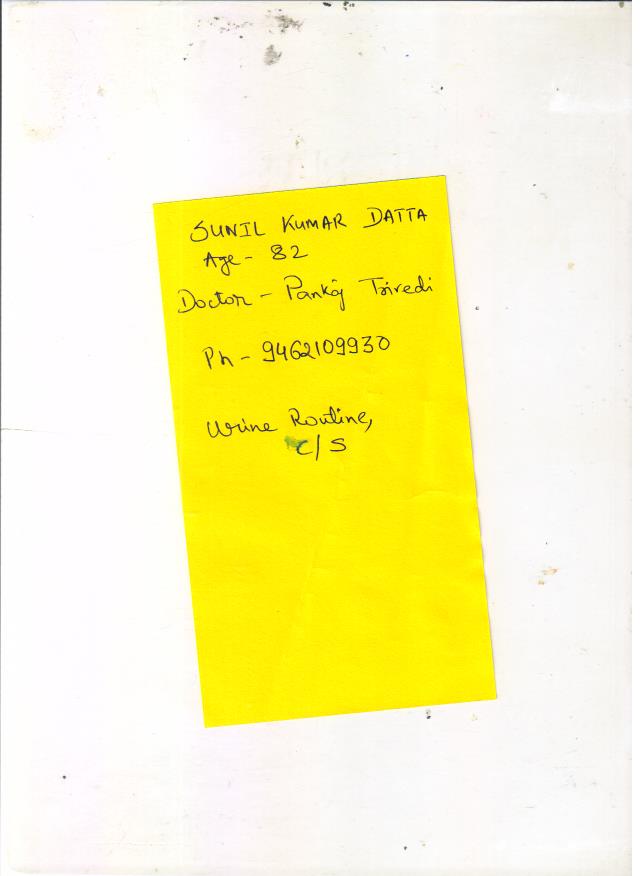 SUNIL KUMAR DATTA
Age - 82
Doctor - Pankaj Trivedi
Ph - 9462109930
Urine Routine,
C/S